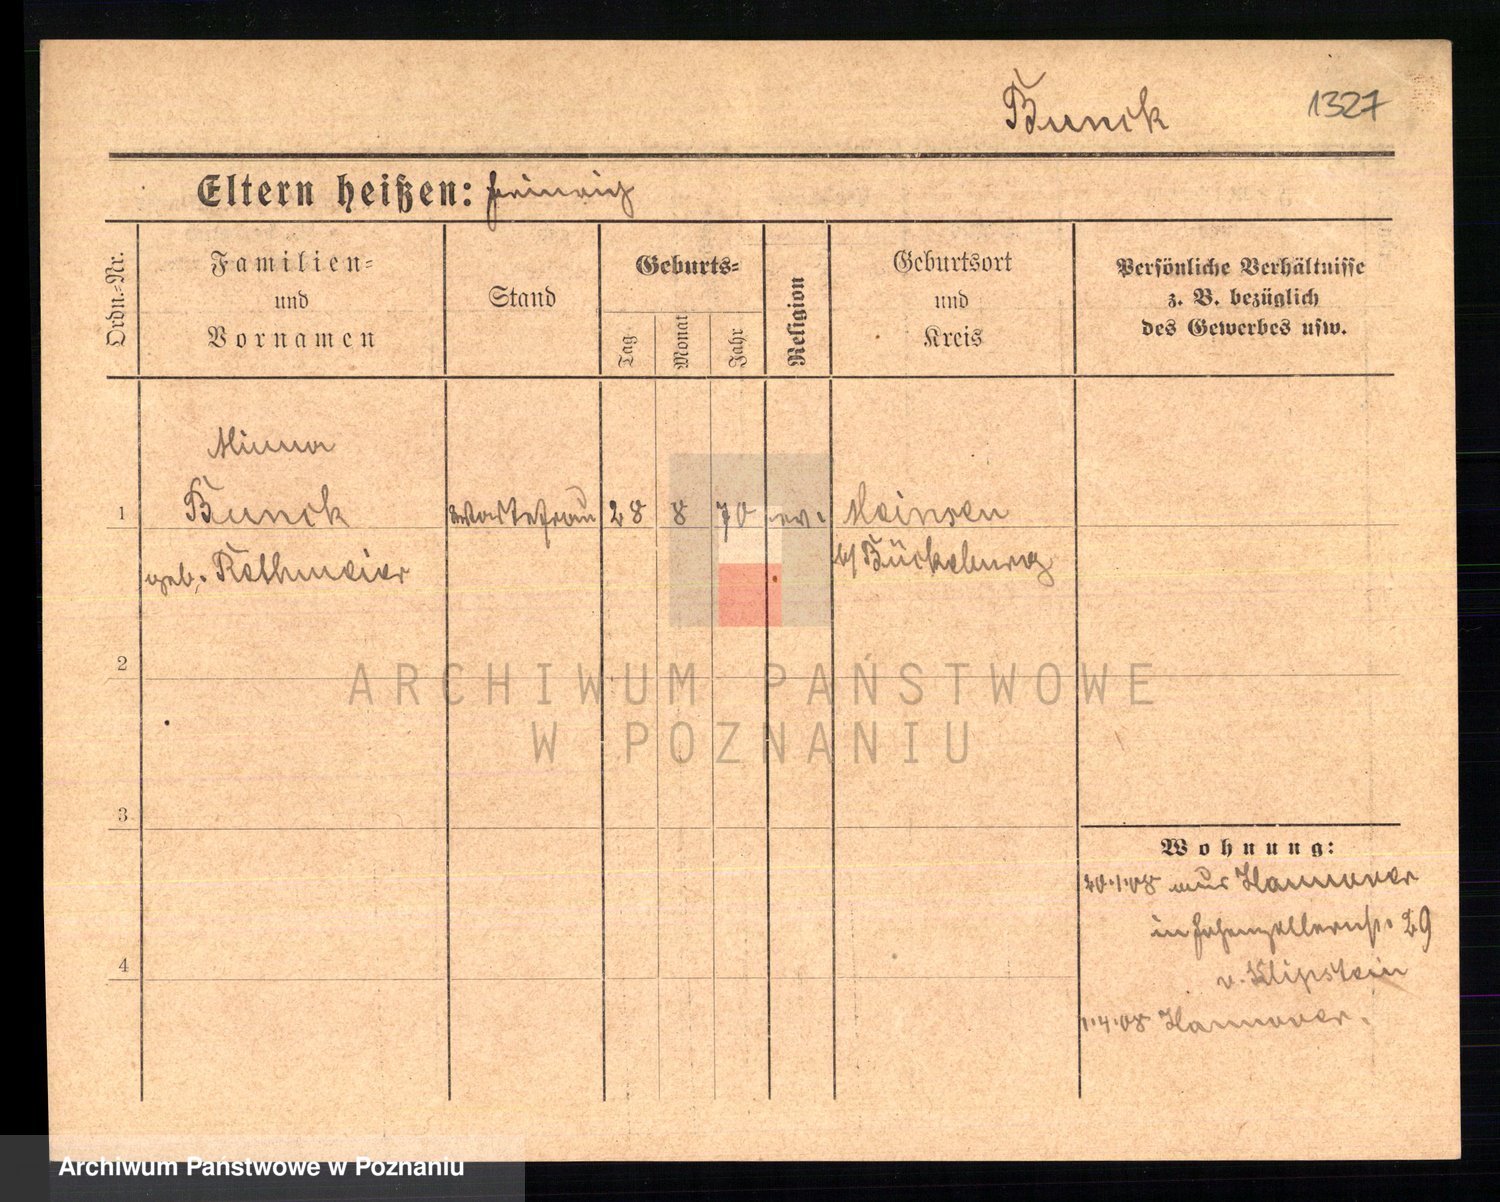 Bunck 1327
Eltern heißen: Heinrich
Ordn.-Nr.
Familien-
und
Vornamen
Stand
Geburts-
Tag
Monat
Jahr
Religion
Geburtsort
und
Kreis
Persönliche Verhältnisse
z. B. bezüglich
des Gewerbes usw.
Minna
1 Bunck Wartefrau 28 8 70 ev. Meinsen
geb. Rethmeier b/ Bückeburg
2
ARCHIWUM PAŃSTWOWE
W POZNANIU
3
Wohnung:
20.1.08 aus Hannover
in Hohenzollernstr. 29
v. Klipstein
4
1.4.08 Hannover.
Archiwum Państwowe w Poznaniu